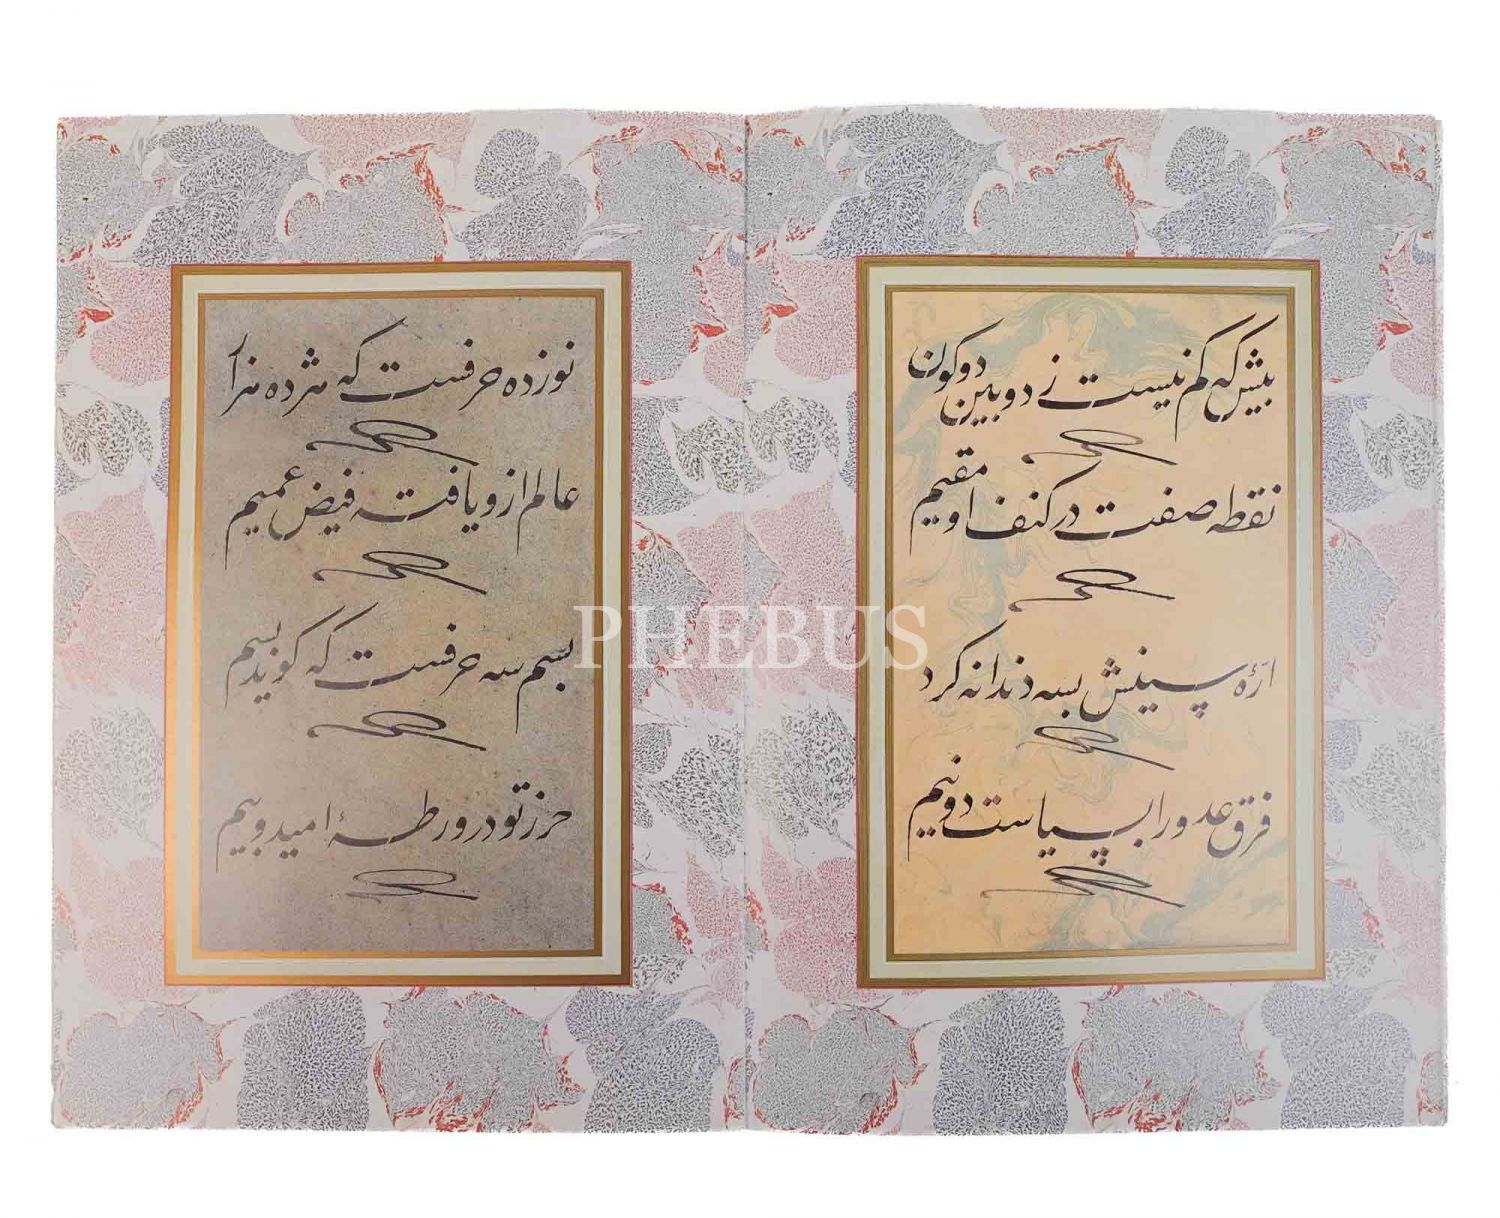 بیش که کم نیست ز دو بین دو کون
نقطه صفت در کنف او مقیم
ارّهٔ سینش بسه دندانه کرد
فرق عدو را بسیاست دو نیم
نوزده حرفست که هژده هزار
عالم ازو یافته فیض عمیم
بسم سه حرفست که گوید بسم
حرز تو در ورطهٔ امید و بیم
PHEBUS